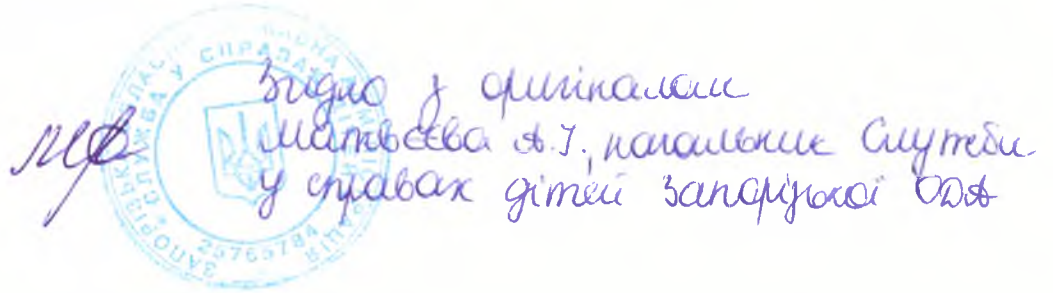 Згідно з оригіналом
Матвєєва А.І., начальник Служби
у справах дітей Запорізької ОДА
СЛУЖБА У СПРАВАХ
ЗАПОРІЗЬКА
25765784